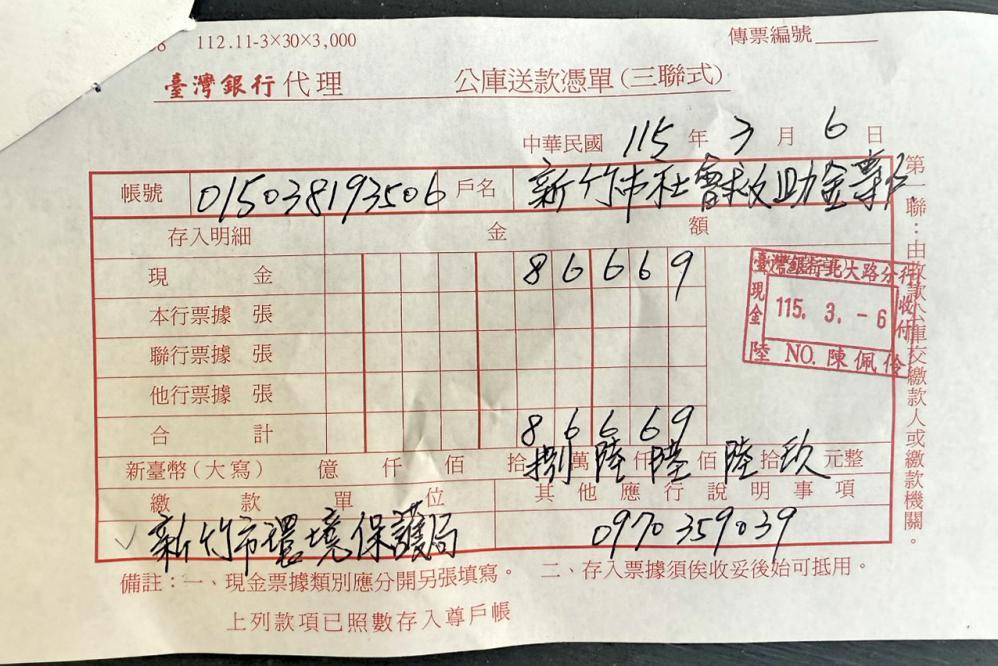 8 112.11-3×30×3,000
傳票編號
臺灣銀行代理 公庫送款憑單(三聯式)
中華民國 115 年 3 月 6 日
帳號 015038193506 戶名 新竹市社會救助金專戶
存入明細 金額
現金 86669
本行票據 張
聯行票據 張
他行票據 張
合計 86669
新臺幣(大寫) 億 仟 佰 拾 捌 萬 陸 仟 陸 佰 陸 拾 玖 元整
繳款單位 其他應行說明事項
新竹市環境保護局 0970359039
備註:一、現金票據類別應分開另張填寫。 二、存入票據須俟收妥後始可抵用。
上列款項已照數存入尊戶帳
臺灣銀行北大路分行
現金
115. 3. -6
收付
陸 NO. 陳佩伶
第一聯:由收款公庫交繳款人或繳款機關。